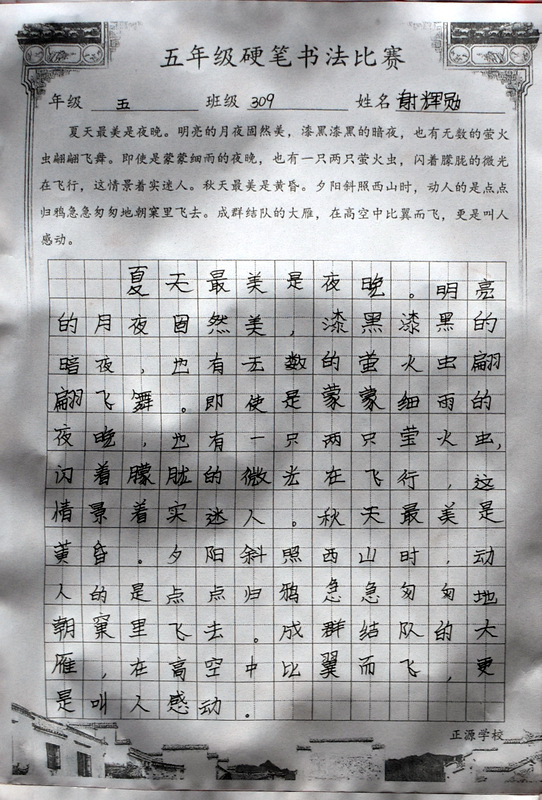 五年级硬笔书法比赛
年级 五 班级 309 姓名 谢辉勋
夏天最美是夜晚。明亮的月夜固然美，漆黑漆黑的暗夜，也有无数的萤火
虫翩翩飞舞。即使是蒙蒙细雨的夜晚，也有一只两只萤火虫，闪着朦胧的微光
在飞行，这情景着实迷人。秋天最美是黄昏。夕阳斜照西山时，动人的是点点
归鸦急急匆匆地朝窠里飞去。成群结队的大雁，在高空中比翼而飞，更是叫人
感动。
夏天最美是夜晚。明亮
的月夜固然美，漆黑漆黑的
暗夜，也有无数的萤火虫翩
翩飞舞。即使是蒙蒙细雨的
夜晚，也有一只两只萤火虫，
闪着朦胧的微光在飞行，这
情景着实迷人。秋天最美是
黄昏。夕阳斜照西山时，动
人的是点点归鸦急急匆匆地
朝窠里飞去。成群结队的大
雁，在高空中比翼而飞，更
是叫人感动。
正源学校